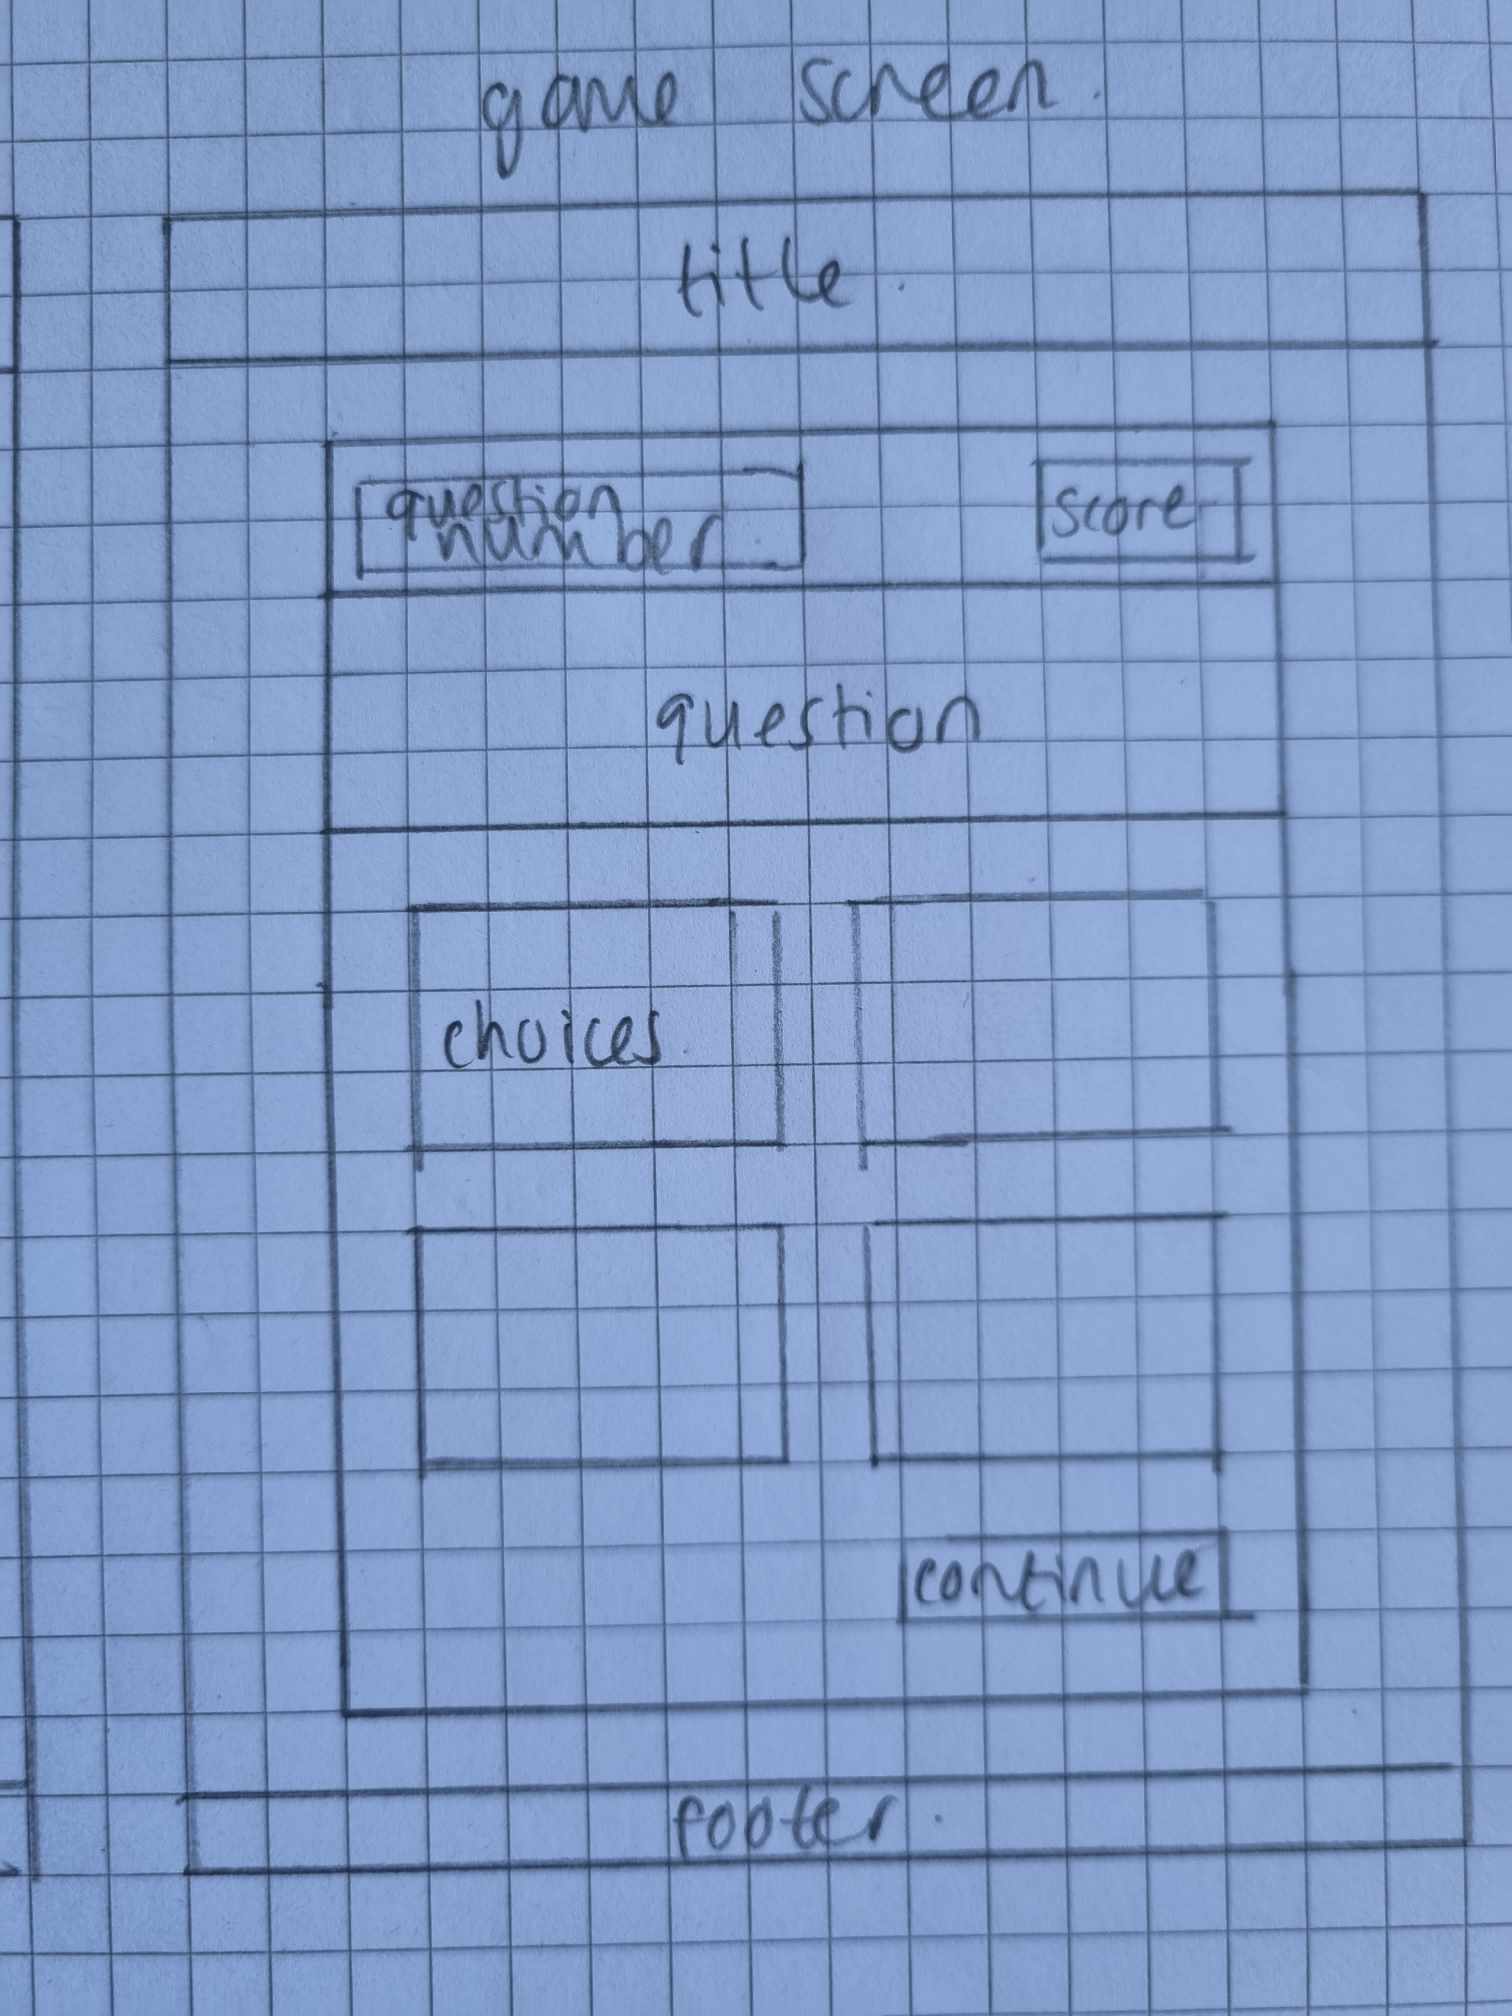 game screen.
title.
question
number
score
question
choices.
continue
footer.